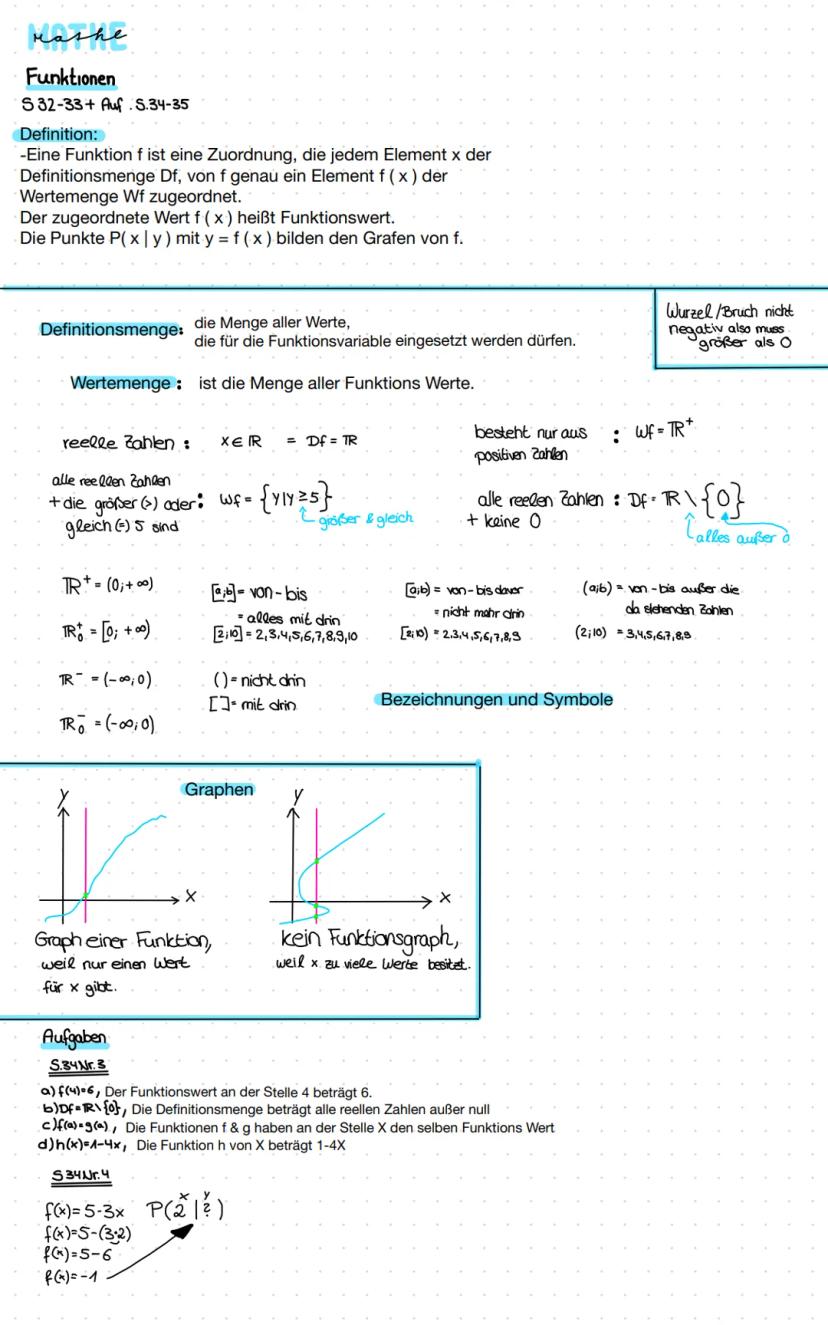 MATHE
Mathe
Funktionen
S 32-33 + Auf. S.34-35
Definition:
-Eine Funktion f ist eine Zuordnung, die jedem Element x der
Definitionsmenge Df, von f genau ein Element f ( x ) der
Wertemenge Wf zugeordnet.
Der zugeordnete Wert f ( x ) heißt Funktionswert.
Die Punkte P( x | y ) mit y = f ( x ) bilden den Grafen von f.
Wurzel/Bruch nicht
negativ also muss
größer als 0
Definitionsmenge: die Menge aller Werte,
die für die Funktionsvariable eingesetzt werden dürfen.
Wertemenge : ist die Menge aller Funktions Werte.
reelle Zahlen : x∈ℝ = Df = ℝ
besteht nur aus : Wf = ℝ⁺
positiven Zahlen
alle reellen Zahlen
+ die größer (>) oder : Wf = {y|y ≥ 5}
gleich (=) 5 sind
größer & gleich
alle reelen Zahlen : Df = ℝ \ {0}
+ keine 0
alles außer 0
ℝ⁺ = (0;+∞)
ℝ₀⁺ = [0; +∞)
ℝ⁻ = (-∞;0)
ℝ₀⁻ = (-∞;0)
[a;b] = von-bis
= alles mit drin
[2;10] = 2,3,4,5,6,7,8,9,10
( ) = nicht drin
[ ] = mit drin
[a;b) = von-bis davor
= nicht mehr drin
[2;10) = 2,3,4,5,6,7,8,9
(a;b) = von-bis außer die
da stehenden Zahlen
(2;10) = 3,4,5,6,7,8,9
Bezeichnungen und Symbole
Graphen
y
x
Graph einer Funktion,
weil nur einen Wert
für x gibt.
y
x
kein Funktionsgraph,
weil x zu viele Werte besitzt.
Aufgaben
S.34 Nr.3
a) f(4)=6, Der Funktionswert an der Stelle 4 beträgt 6.
b) Df=ℝ\{0}, Die Definitionsmenge beträgt alle reellen Zahlen außer null
c) f(a)=g(a), Die Funktionen f & g haben an der Stelle X den selben Funktions Wert
d) h(x)=1-4x, Die Funktion h von X beträgt 1-4X
S 34 Nr.4
x y
f(x)= 5-3x P(2 | ?)
f(x)=5-(3·2)
f(x)=5-6
f(x)=-1